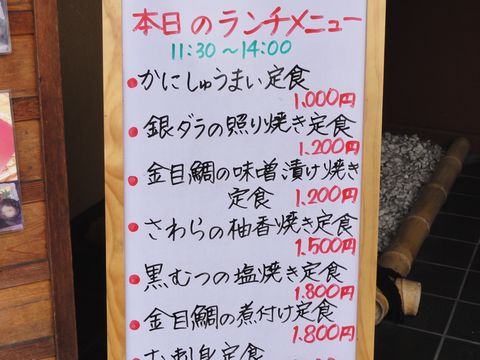 本日のランチメニュー
11:30～14:00
かにしゅうまい定食
1,000円
銀ダラの照り焼き定食
1,200円
金目鯛の味噌漬け焼き
定食 1,200円
さわらの柚香焼き定食
1,500円
黒むつの塩焼き定食
1,800円
金目鯛の煮付け定食
1,800円
お刺身定食